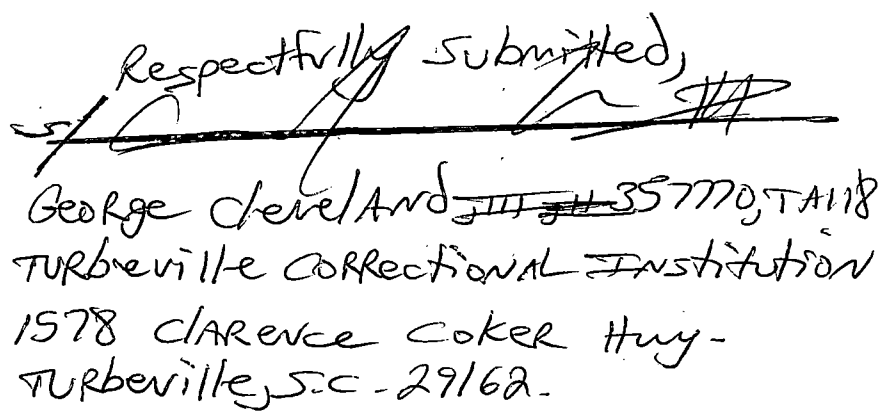 Respectfully Submitted,
s/
George Cleveland, III, # 357770, TA118
Turbeville Correctional Institution
1578 Clarence Coker Hwy-
Turbeville, S.C. - 29162.